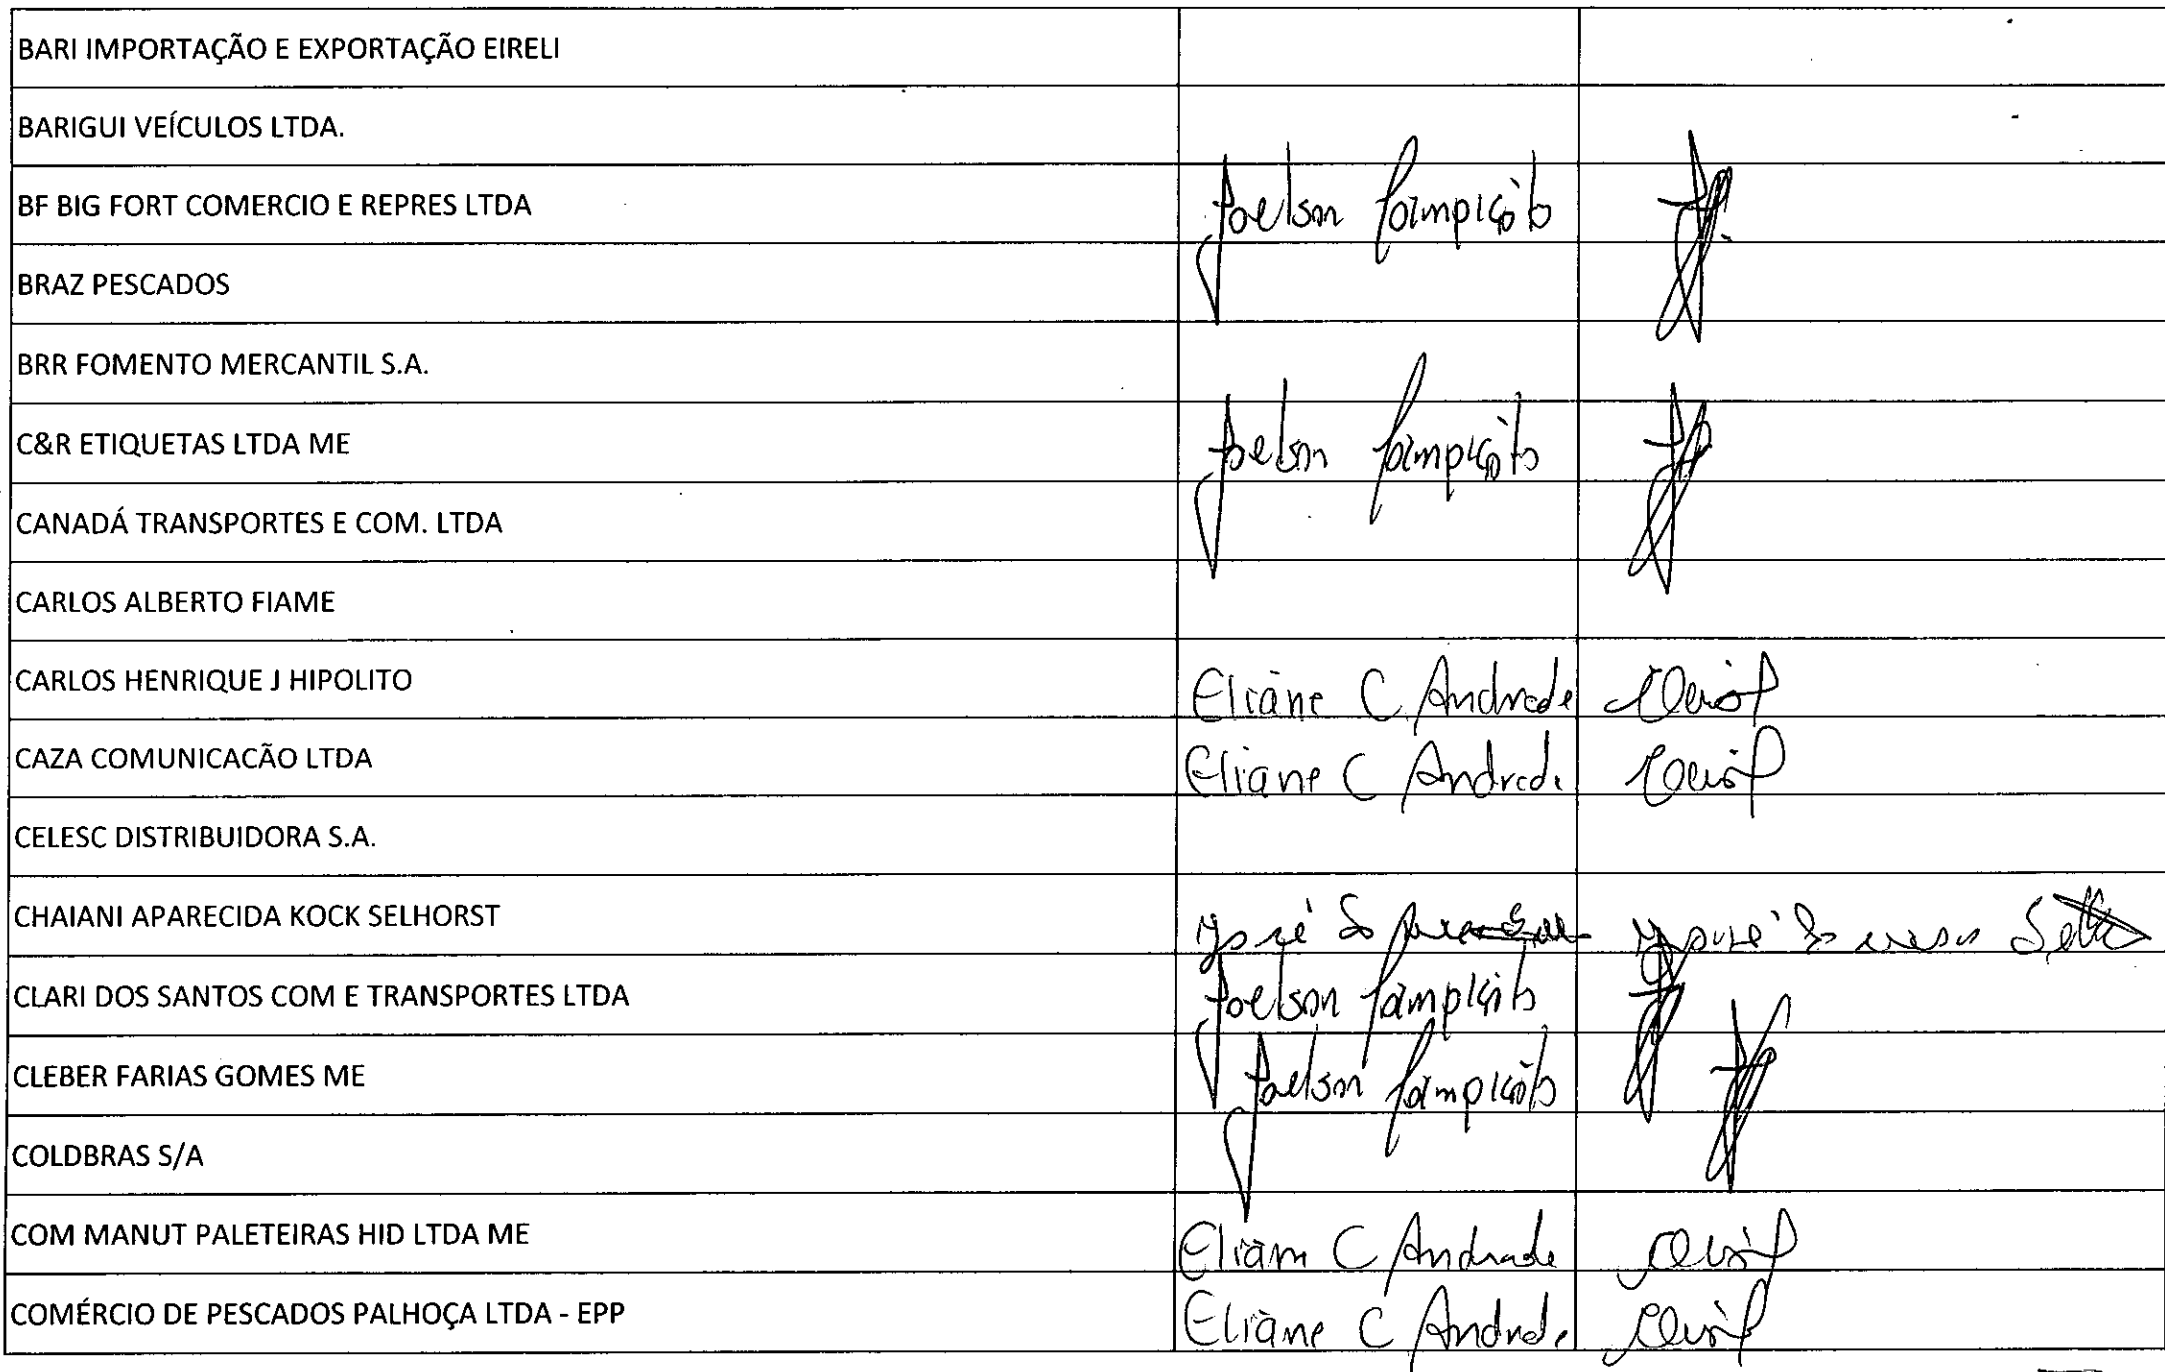 BARI IMPORTAÇÃO E EXPORTAÇÃO EIRELI
BARIGUI VEÍCULOS LTDA.
BF BIG FORT COMERCIO E REPRES LTDA Joelson
BRAZ PESCADOS
BRR FOMENTO MERCANTIL S.A.
C&R ETIQUETAS LTDA ME Joelson
CANADÁ TRANSPORTES E COM. LTDA
CARLOS ALBERTO FIAME
CARLOS HENRIQUE J HIPOLITO Eliane C Andrade
CAZA COMUNICACÃO LTDA Eliane C Andrade
CELESC DISTRIBUIDORA S.A.
CHAIANI APARECIDA KOCK SELHORST José
CLARI DOS SANTOS COM E TRANSPORTES LTDA Joelson
CLEBER FARIAS GOMES ME Joelson
COLDBRAS S/A
COM MANUT PALETEIRAS HID LTDA ME Eliane C Andrade
COMÉRCIO DE PESCADOS PALHOÇA LTDA - EPP Eliane C Andrade